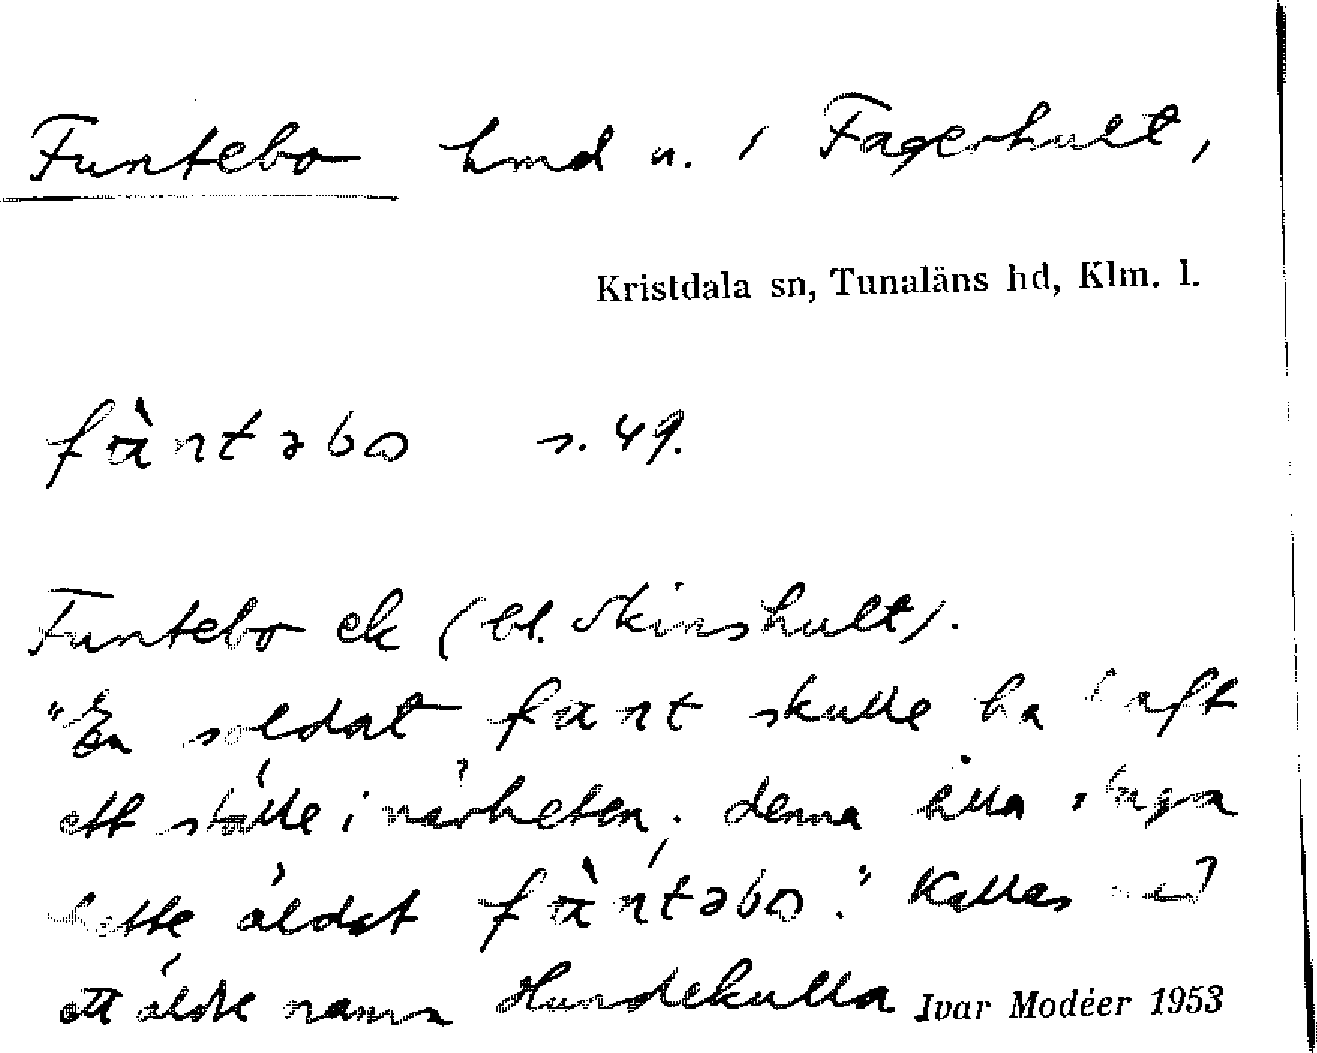 Funtebo hmd u. i Fagerhult,
Kristdala sn, Tunaläns hd, Klm. l.
fàntəbo s. 49.
Funtebo ek (bl. Skinshult).
"En soldat fant skulle ha haft
ett ställe i närheten; denna lilla stuga
hette äldst fàntəbo." Kallas med
ett äldre namn Hundekulla Ivar Modéer 1953